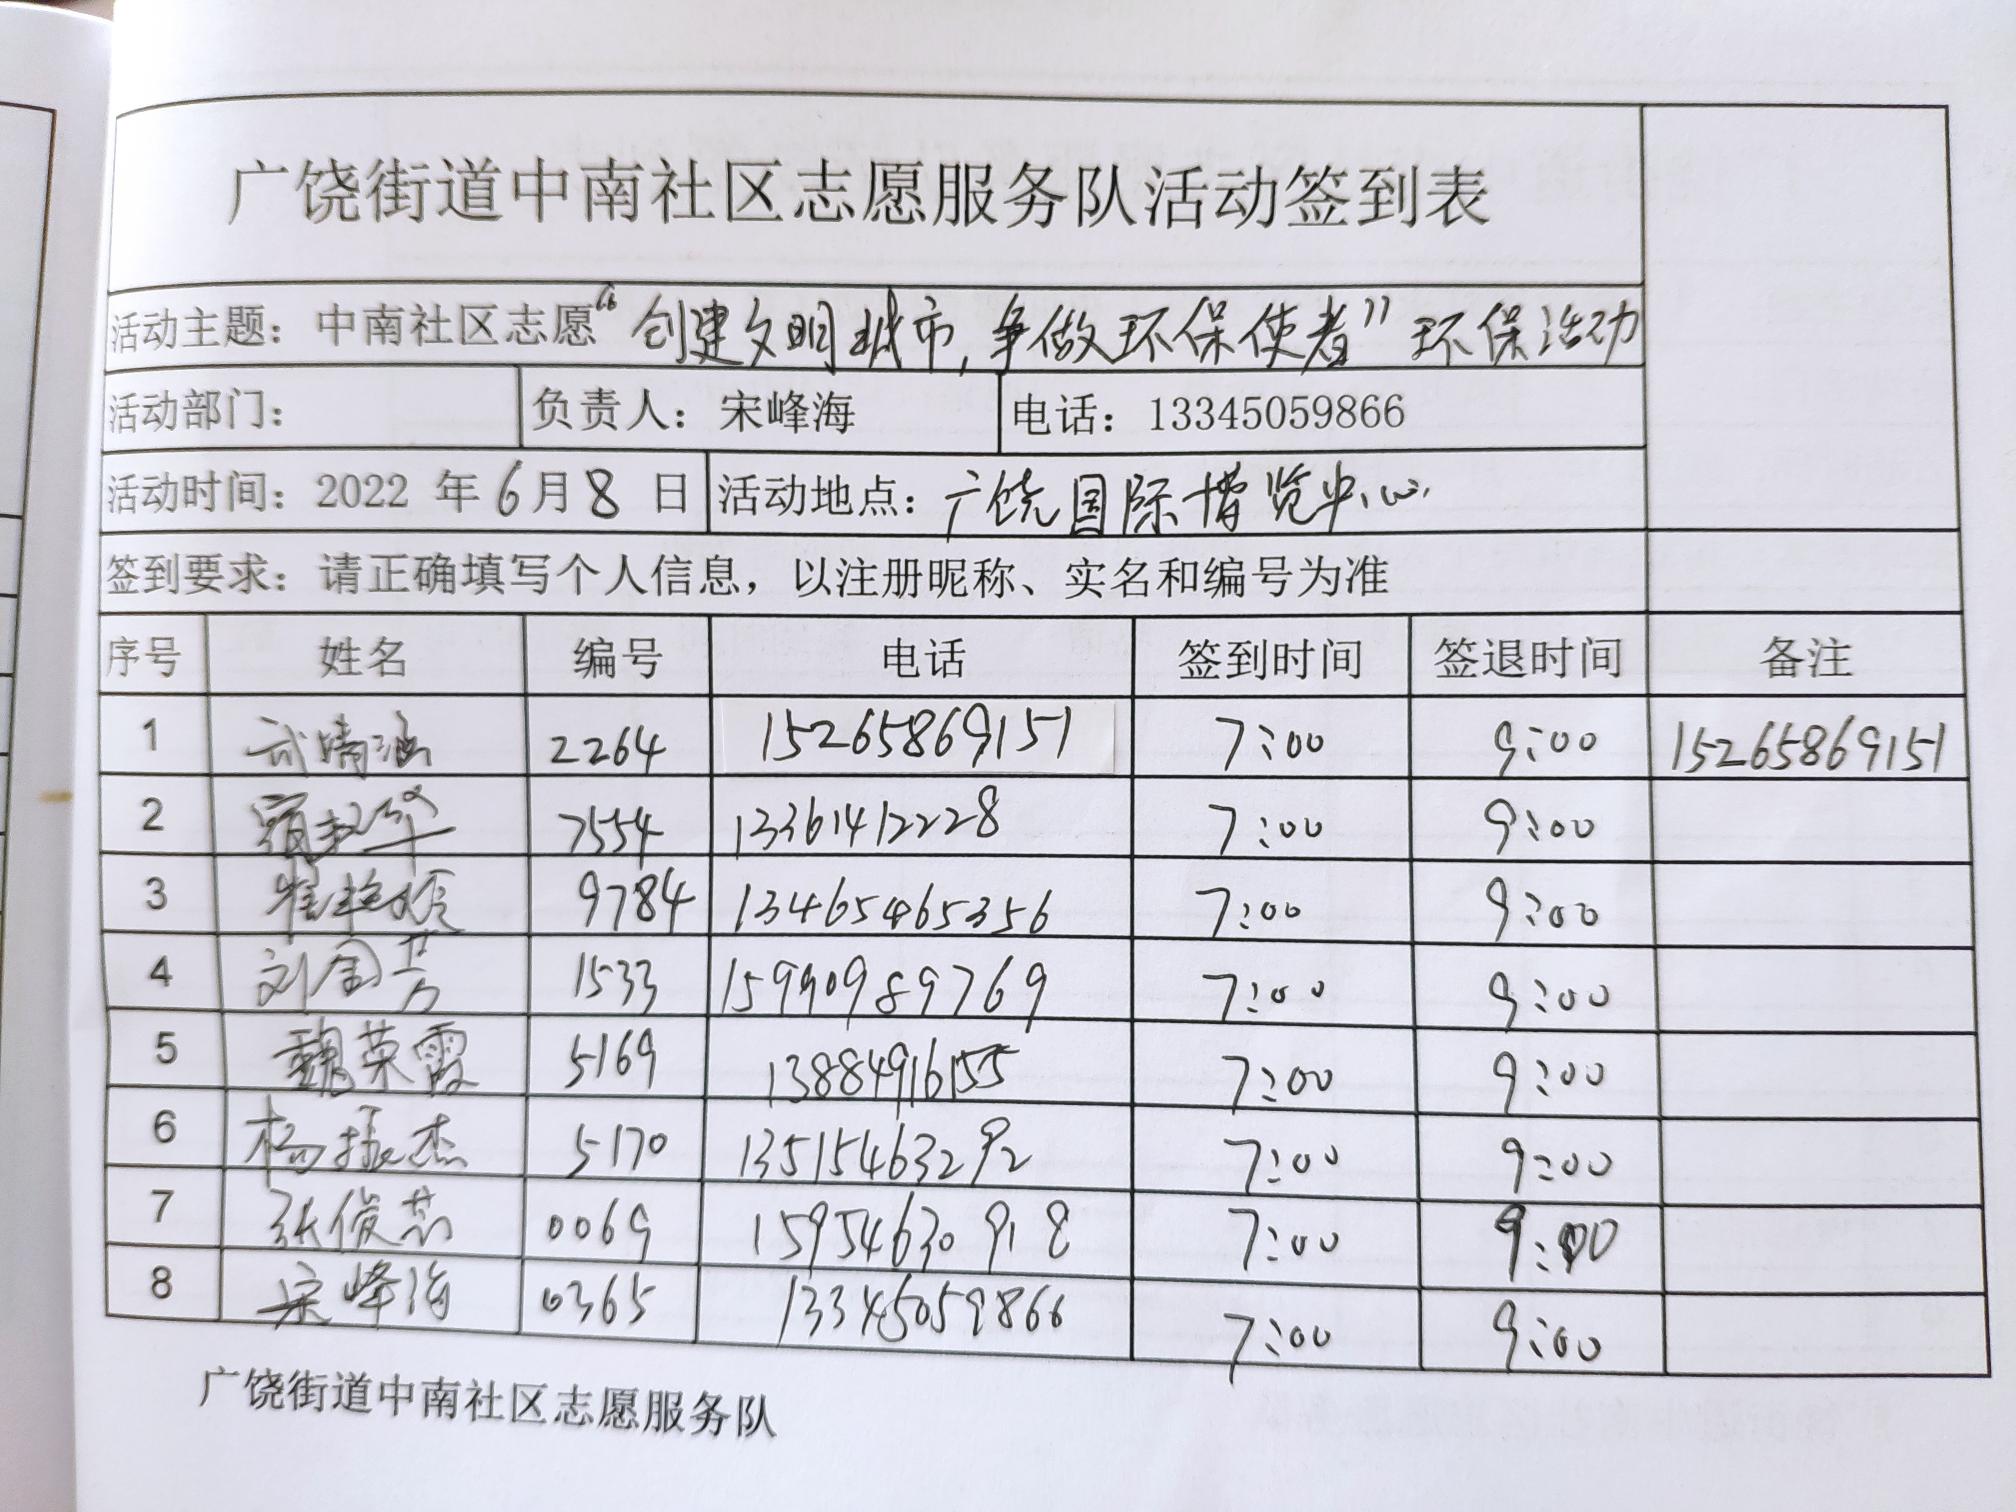 广饶街道中南社区志愿服务队活动签到表
活动主题：中南社区志愿“创建文明城市，争做环保使者”环保活动
活动部门： 负责人：宋峰海 电话：13345059866
活动时间：2022 年 6月 8 日 活动地点：广饶国际博览中心
签到要求：请正确填写个人信息，以注册昵称、实名和编号为准
序号 姓名 编号 电话 签到时间 签退时间 备注
1 武晴涵 2264 15265869151 7:00 9:00 15265869151
2 7554 13361412228 7:00 9:00
3 崔艳玲 9784 13465465356 7:00 9:00
4 刘金芳 1533 15990989769 7:00 9:00
5 魏英霞 5169 13884916155 7:00 9:00
6 杨振杰 5170 13515463292 7:00 9:00
7 张俊芬 0069 15954630918 7:00 9:00
8 宋峰海 0365 13345059866 7:00 9:00
广饶街道中南社区志愿服务队